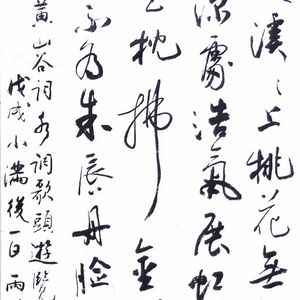 溪〻上桃花無
深處浩氣展虹
枕拂金
不為朱脣丹臉
黃山谷詞水調歌頭遊覽
戊戌小滿後一日雨